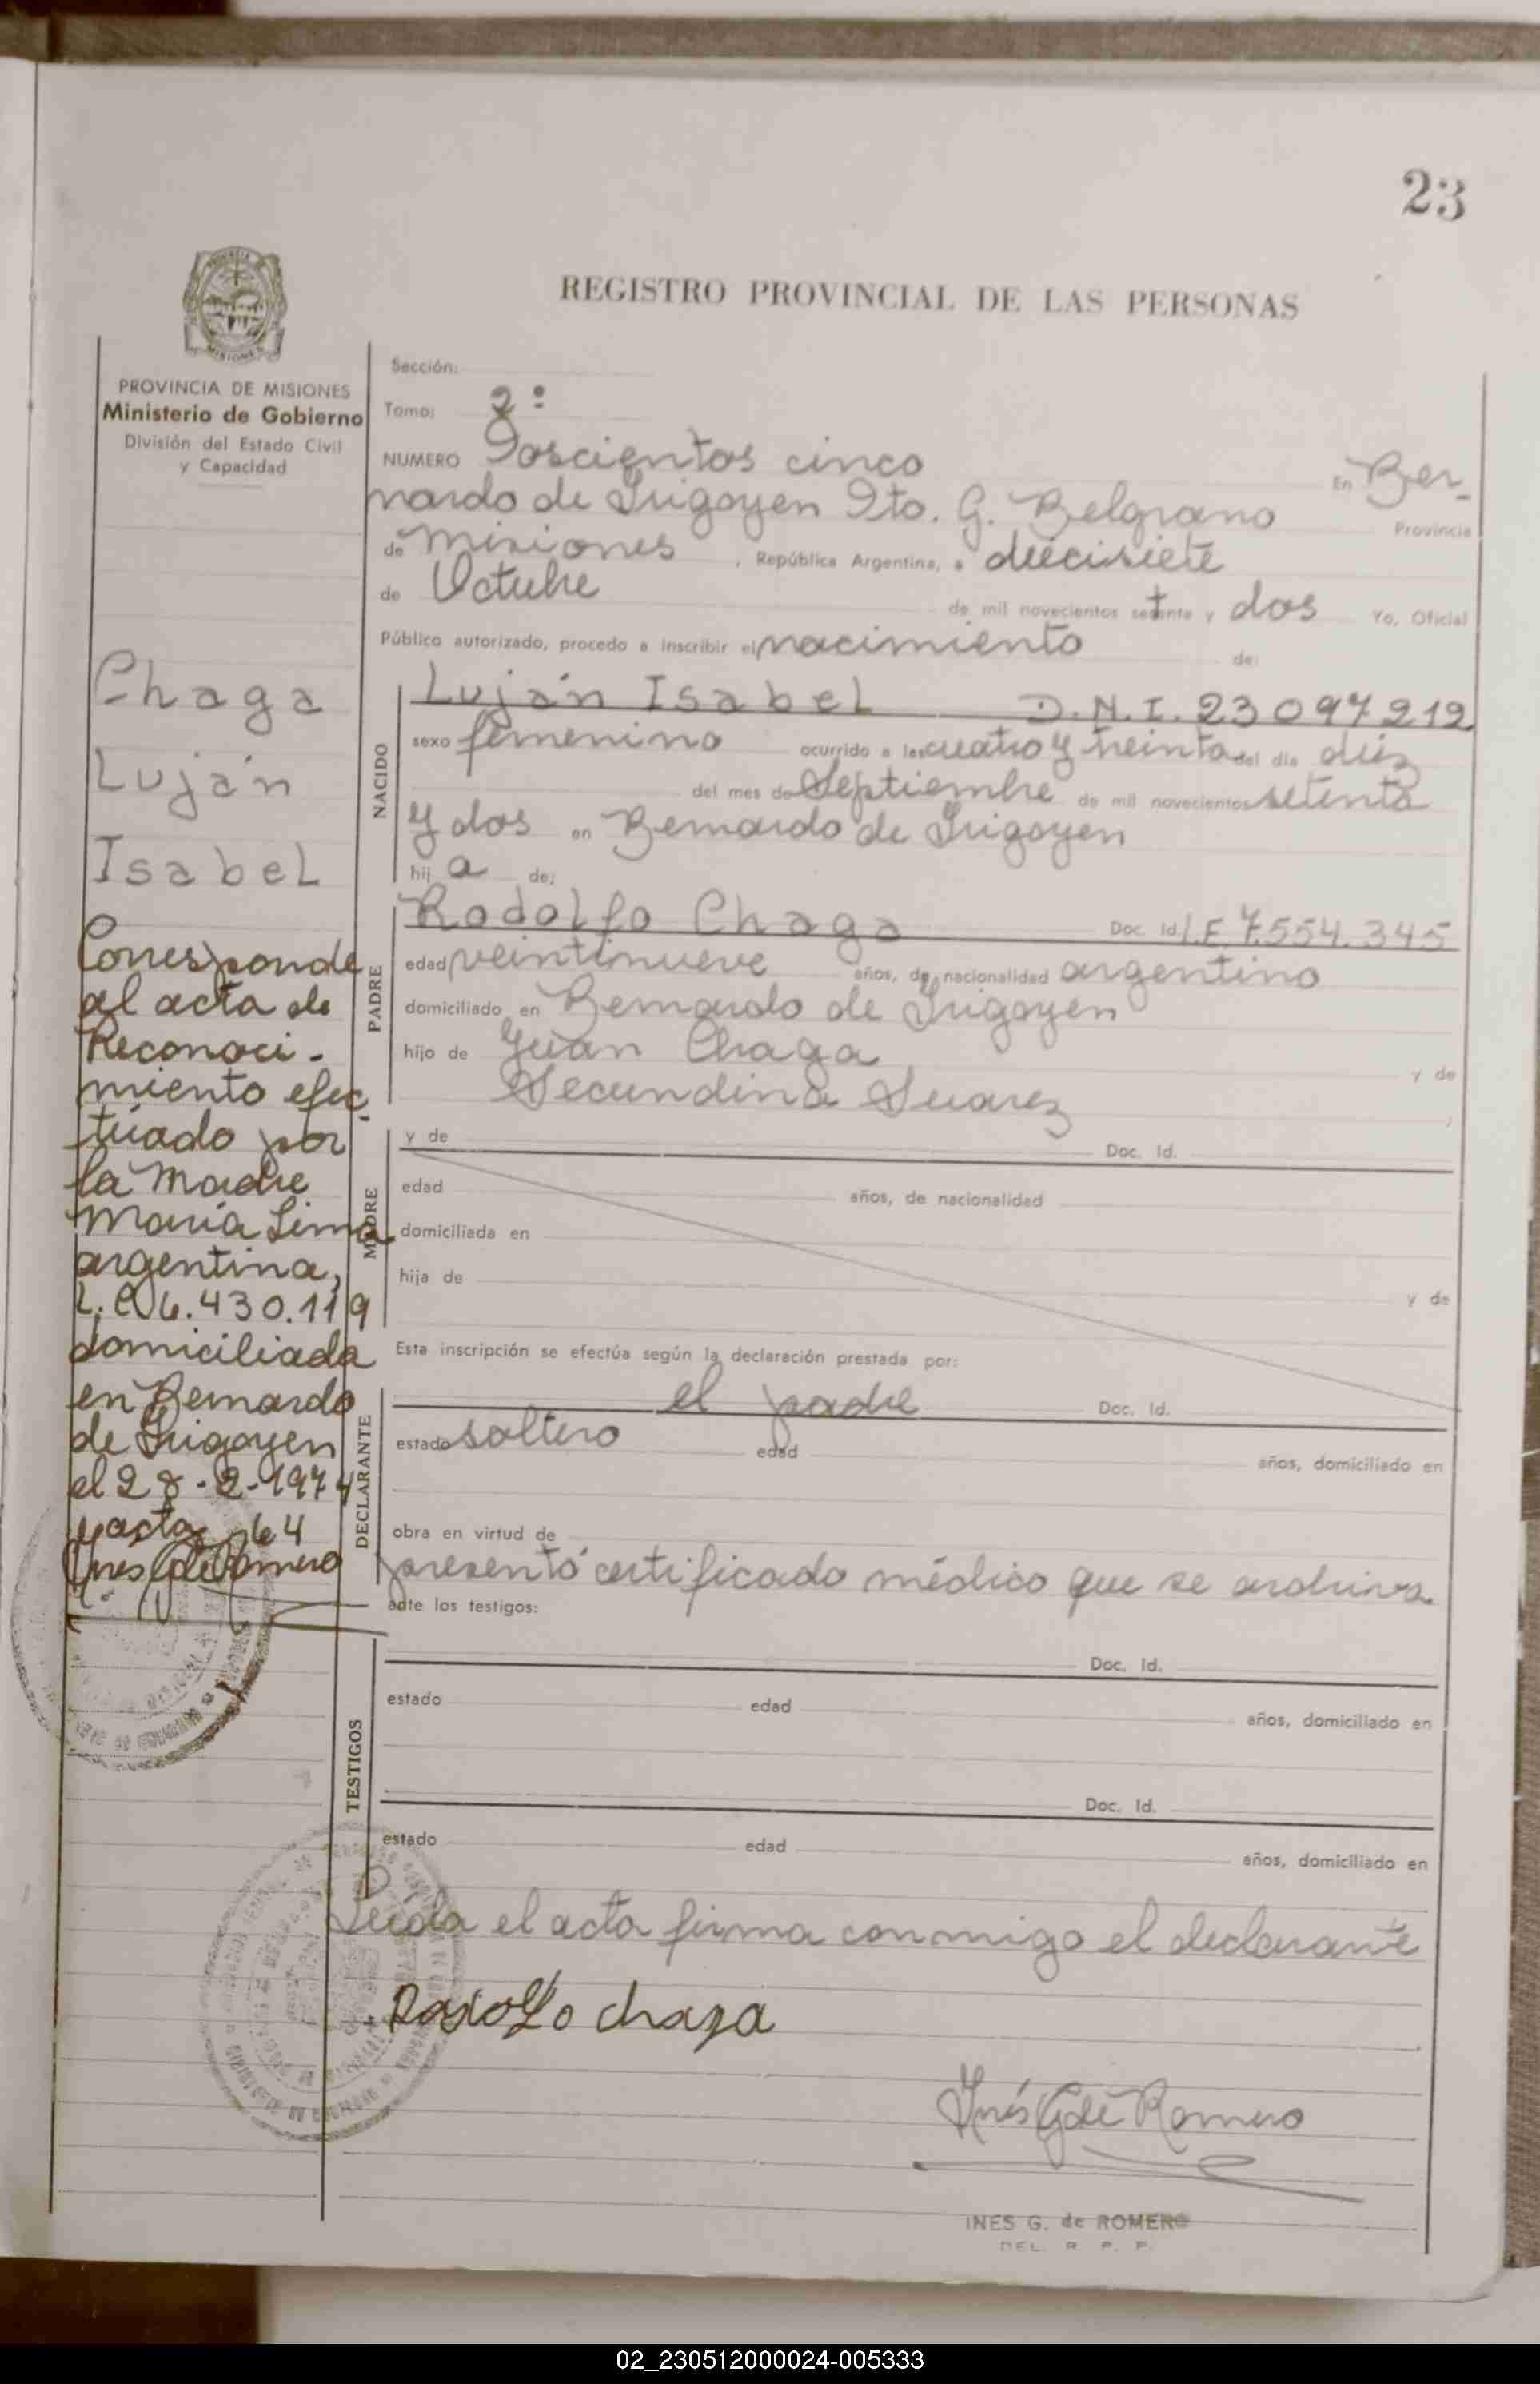 23
REGISTRO PROVINCIAL DE LAS PERSONAS
MISIONES
PROVINCIA DE MISIONES
Ministerio de Gobierno
División del Estado Civil
y Capacidad
Sección:
Tomo: 2º
NUMERO Doscientos cinco En Ber-
nardo de Irigoyen Dto. G. Belgrano Provincia
de Misiones, República Argentina, a diecisiete
de Octubre de mil novecientos setenta y dos Yo, Oficial
Público autorizado, procedo a inscribir el nacimiento de:
Chaga
Luján
Isabel
NACIDO
Luján Isabel D.N.I. 23097212
sexo femenino ocurrido a las cuatro y treinta del día diez
del mes de Septiembre de mil novecientos setenta
y dos en Bernardo de Irigoyen
hij a de:
PADRE
Rodolfo Chaga Doc. Id. L.E. 7.554.345
edad veintinueve años, de nacionalidad argentino
domiciliado en Bernardo de Irigoyen
hijo de Juan Chaga y de
Secundina Suarez
MADRE
y de Doc. Id.
edad años, de nacionalidad
domiciliada en
hija de y de
Corresponde
al acta de
Reconoci-
miento efec
tuado por
la Madre
María Lima
argentina,
L.C. 6.430.119
domiciliada
en Bernardo
de Irigoyen
el 28-2-1974
acta 64
Inés G de Romero
Esta inscripción se efectúa según la declaración prestada por:
DECLARANTE
el padre Doc. Id.
estado soltero edad años, domiciliado en
obra en virtud de
presentó certificado médico que se archiva
ante los testigos:
TESTIGOS
Doc. Id.
estado edad años, domiciliado en
Doc. Id.
estado edad años, domiciliado en
Leída el acta firma conmigo el declarante
Rodolfo chaga
Inés G de Romero
INES G. de ROMERO
DEL. R. P. P.
02_230512000024-005333